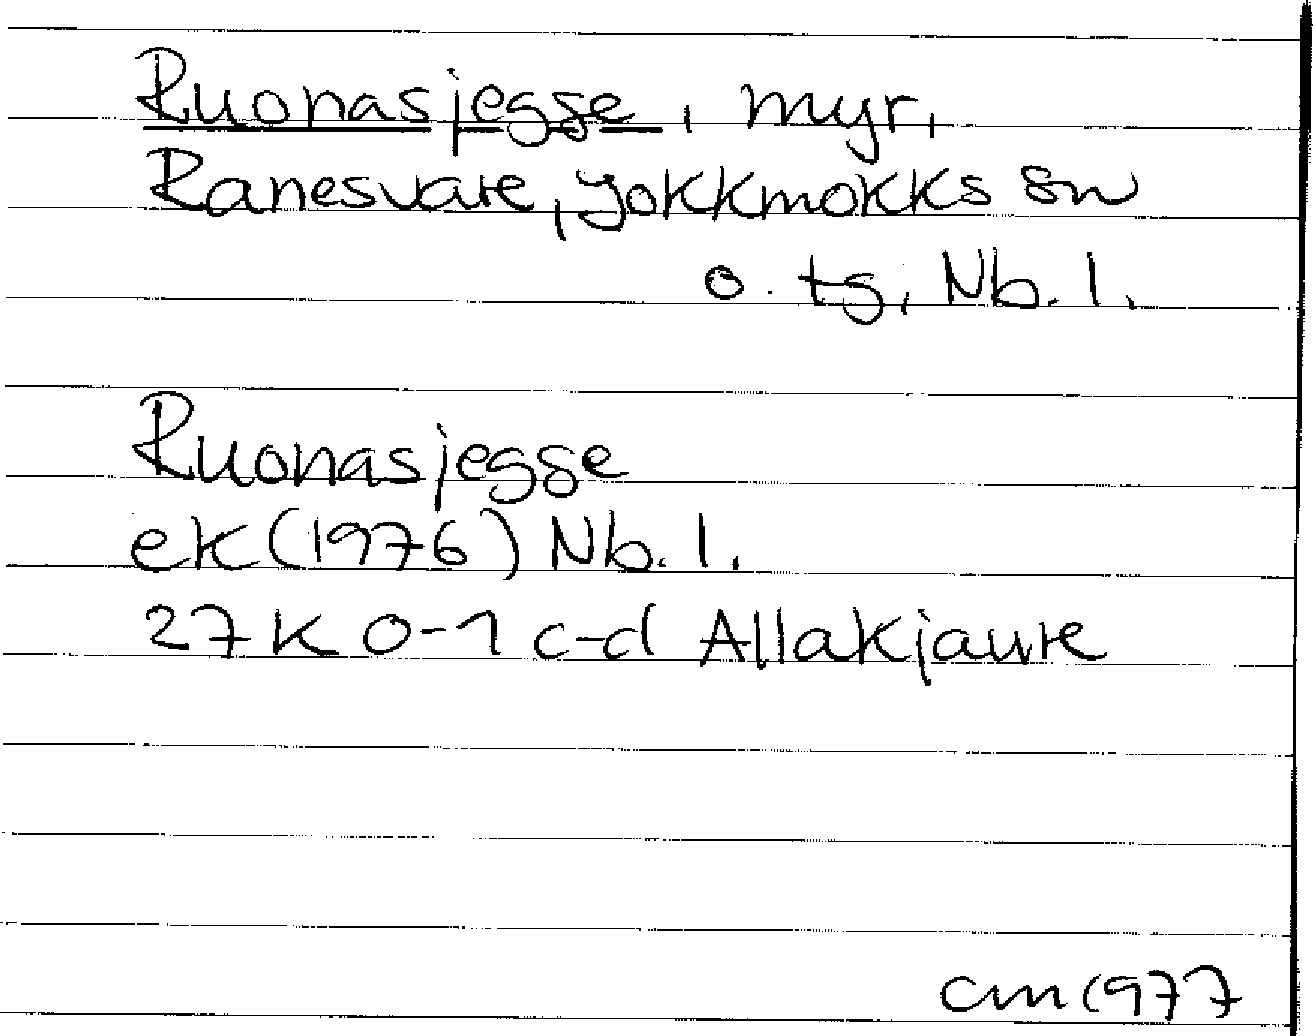 Ruonasjegge, myr,
Ranesvare, Jokkmokks sn
o. tg, Nb. l.
Ruonasjegge
ek (1976) Nb. l.
27 K 0-1 c-d Allakjaure
cm 1977